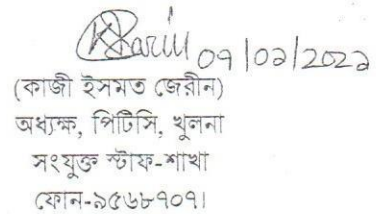 ০৭/০২/২০২২
(কাজী ইসমত জেরীন)
অধ্যক্ষ, পিটিসি, খুলনা
সংযুক্ত স্টাফ-শাখা
ফোন-৯৫৬৮৭০৭।